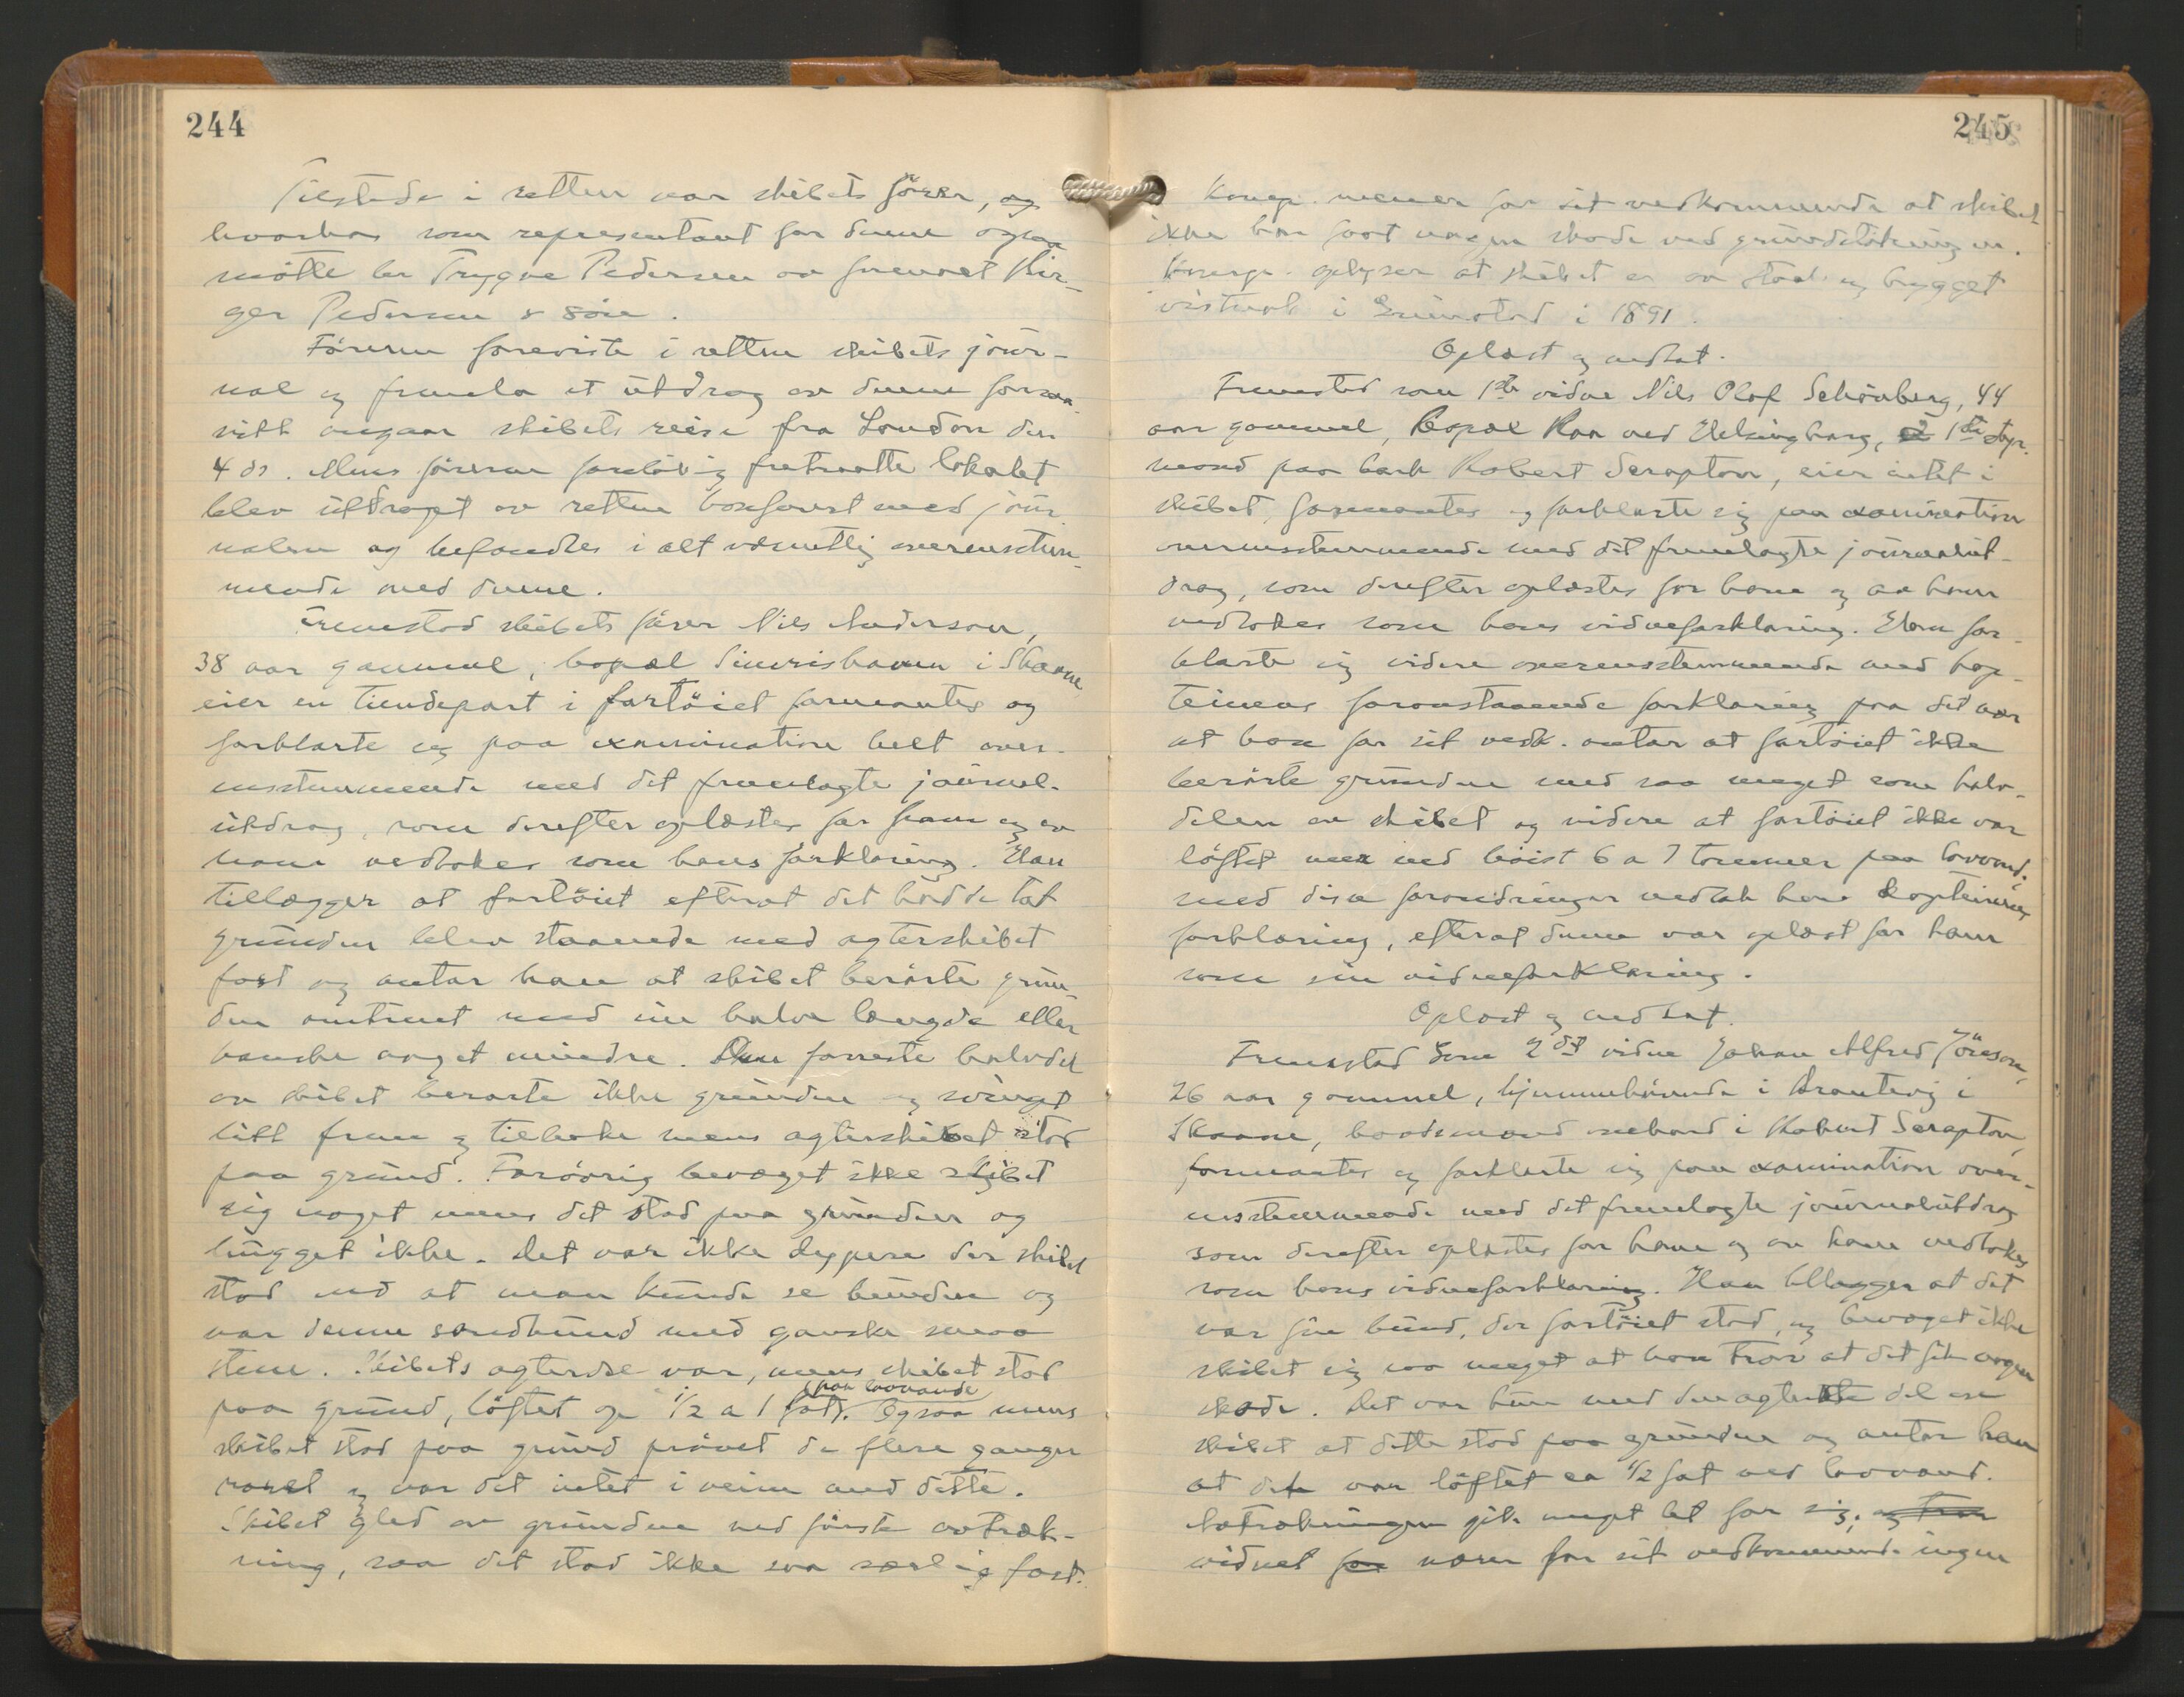 244
Tilstede i retten var skibets förer, og
hvorhos som representant for denne ogsaa
mötte hr Trygve Pedersen av firmaet Bir-
ger Pedersen & Sön.
Föreren foreviste i retten skibets jour-
nal og fremla et utdrag av denne forsaa-
vidt angaar skibets reise fra London den
4 ds. Mens föreren forelöbig fratraatte lokalet
blev utdraget av retten konferert med jour-
nalen og befandtes i alt væsentlig overensstem-
mende med denne.
Fremstod skibets förer Nils Anderson,
38 aar gammel, bopæl Simrishavn i Skaane
eier en tiendepart i fartöiet formantes og
forklarte sig paa examination helt over-
ensstemmende med det fremlagte journal-
utdrag, som derefter oplæstes for ham og av
ham vedtokes som hans forklaring. Han
tillægger at fartöiet efterat det hadde tat
grunden blev staaende med agterskibet
fast og antar han at skibet berörte grun-
den omtrent med sin halve længde eller
kanske noget mindre. Den forreste halvdel
av skibet berørte ikke grunden og svinget
litt frem og tilbake mens agterskibet stod
paa grund. Forövrig bevæget ikke skibet
sig noget mens det stod paa grunden og
hugget ikke. Det var ikke dypere der skibet
stod end at man kunde se bunden og
var denne sandbund med ganske smaa
stene. Skibets agterdel var, mens skibet stod
paa grund, löftet op 1/2 a 1 fot (paa lavvande). Ogsaa mens
skibet stod paa grund prövet de flere ganger
roret og var det intet i veien med dette.
Skibet gled av grunden ved förste avtræk-
ning, saa det stod ikke saa særlig fast.
245
Komp. mener for sit vedkommende at skibet
ikke har faat nogen skade ved grundstötningen.
Komp. oplyser at skibet er av staal og bygget
vistnok i Grimstad i 1891.
Oplæst og vedtat.
Fremstod som 1ste vidne Nils Olof Schönberg, 44
aar gammel, bopæl Raa ved Helsingborg, 1ste styr-
mand paa bark Robert Scrafton, eier intet i
skibet, formantes og forklarte sig paa examination
overensstemmende med det fremlagte journalut-
drag, som derefter oplæstes for ham og av ham
vedtokes som hans vidneforklaring. Han for-
klarte sig videre overensstemmende med kap-
teinens foranstaaende forklaring paa det nær
at han for sit vedk. antar at fartöiet ikke
berörte grunden med saa meget som halv-
delen av skibet og videre at fartöiet ikke var
löftet mer end höist 6 a 7 tommer paa lavvand;
med disse forandringer vedtok han kapteinens
forklaring, efterat denne var oplæst for ham
som sin vidneforklaring.
Oplæst og vedtat.
Fremstod som 2det vidne Johan Alfred Jönson,
26 aar gammel, hjemmehörende i Brantevig i
Skaane, baadsmand ombord i Robert Scrafton,
formantes og forklarte sig paa examination over-
ensstemmende med det fremlagte journalutdrag
som derefter oplæstes for ham og av ham vedtokes
som hans vidneforklaring. Han tillægger at det
var fin bund, der fartöiet stod, og bevæget ikke
skibet sig saa meget at han tror at det fik nogen
skade. Det var kun med den agterste del av
skibet at dette stod paa grunden og antar han
at det var löftet ca 1/2 fot ved lavvand.
Avtrækningen gik meget let for sig, og tror
vidnet for nærer for sit vedkommende ingen